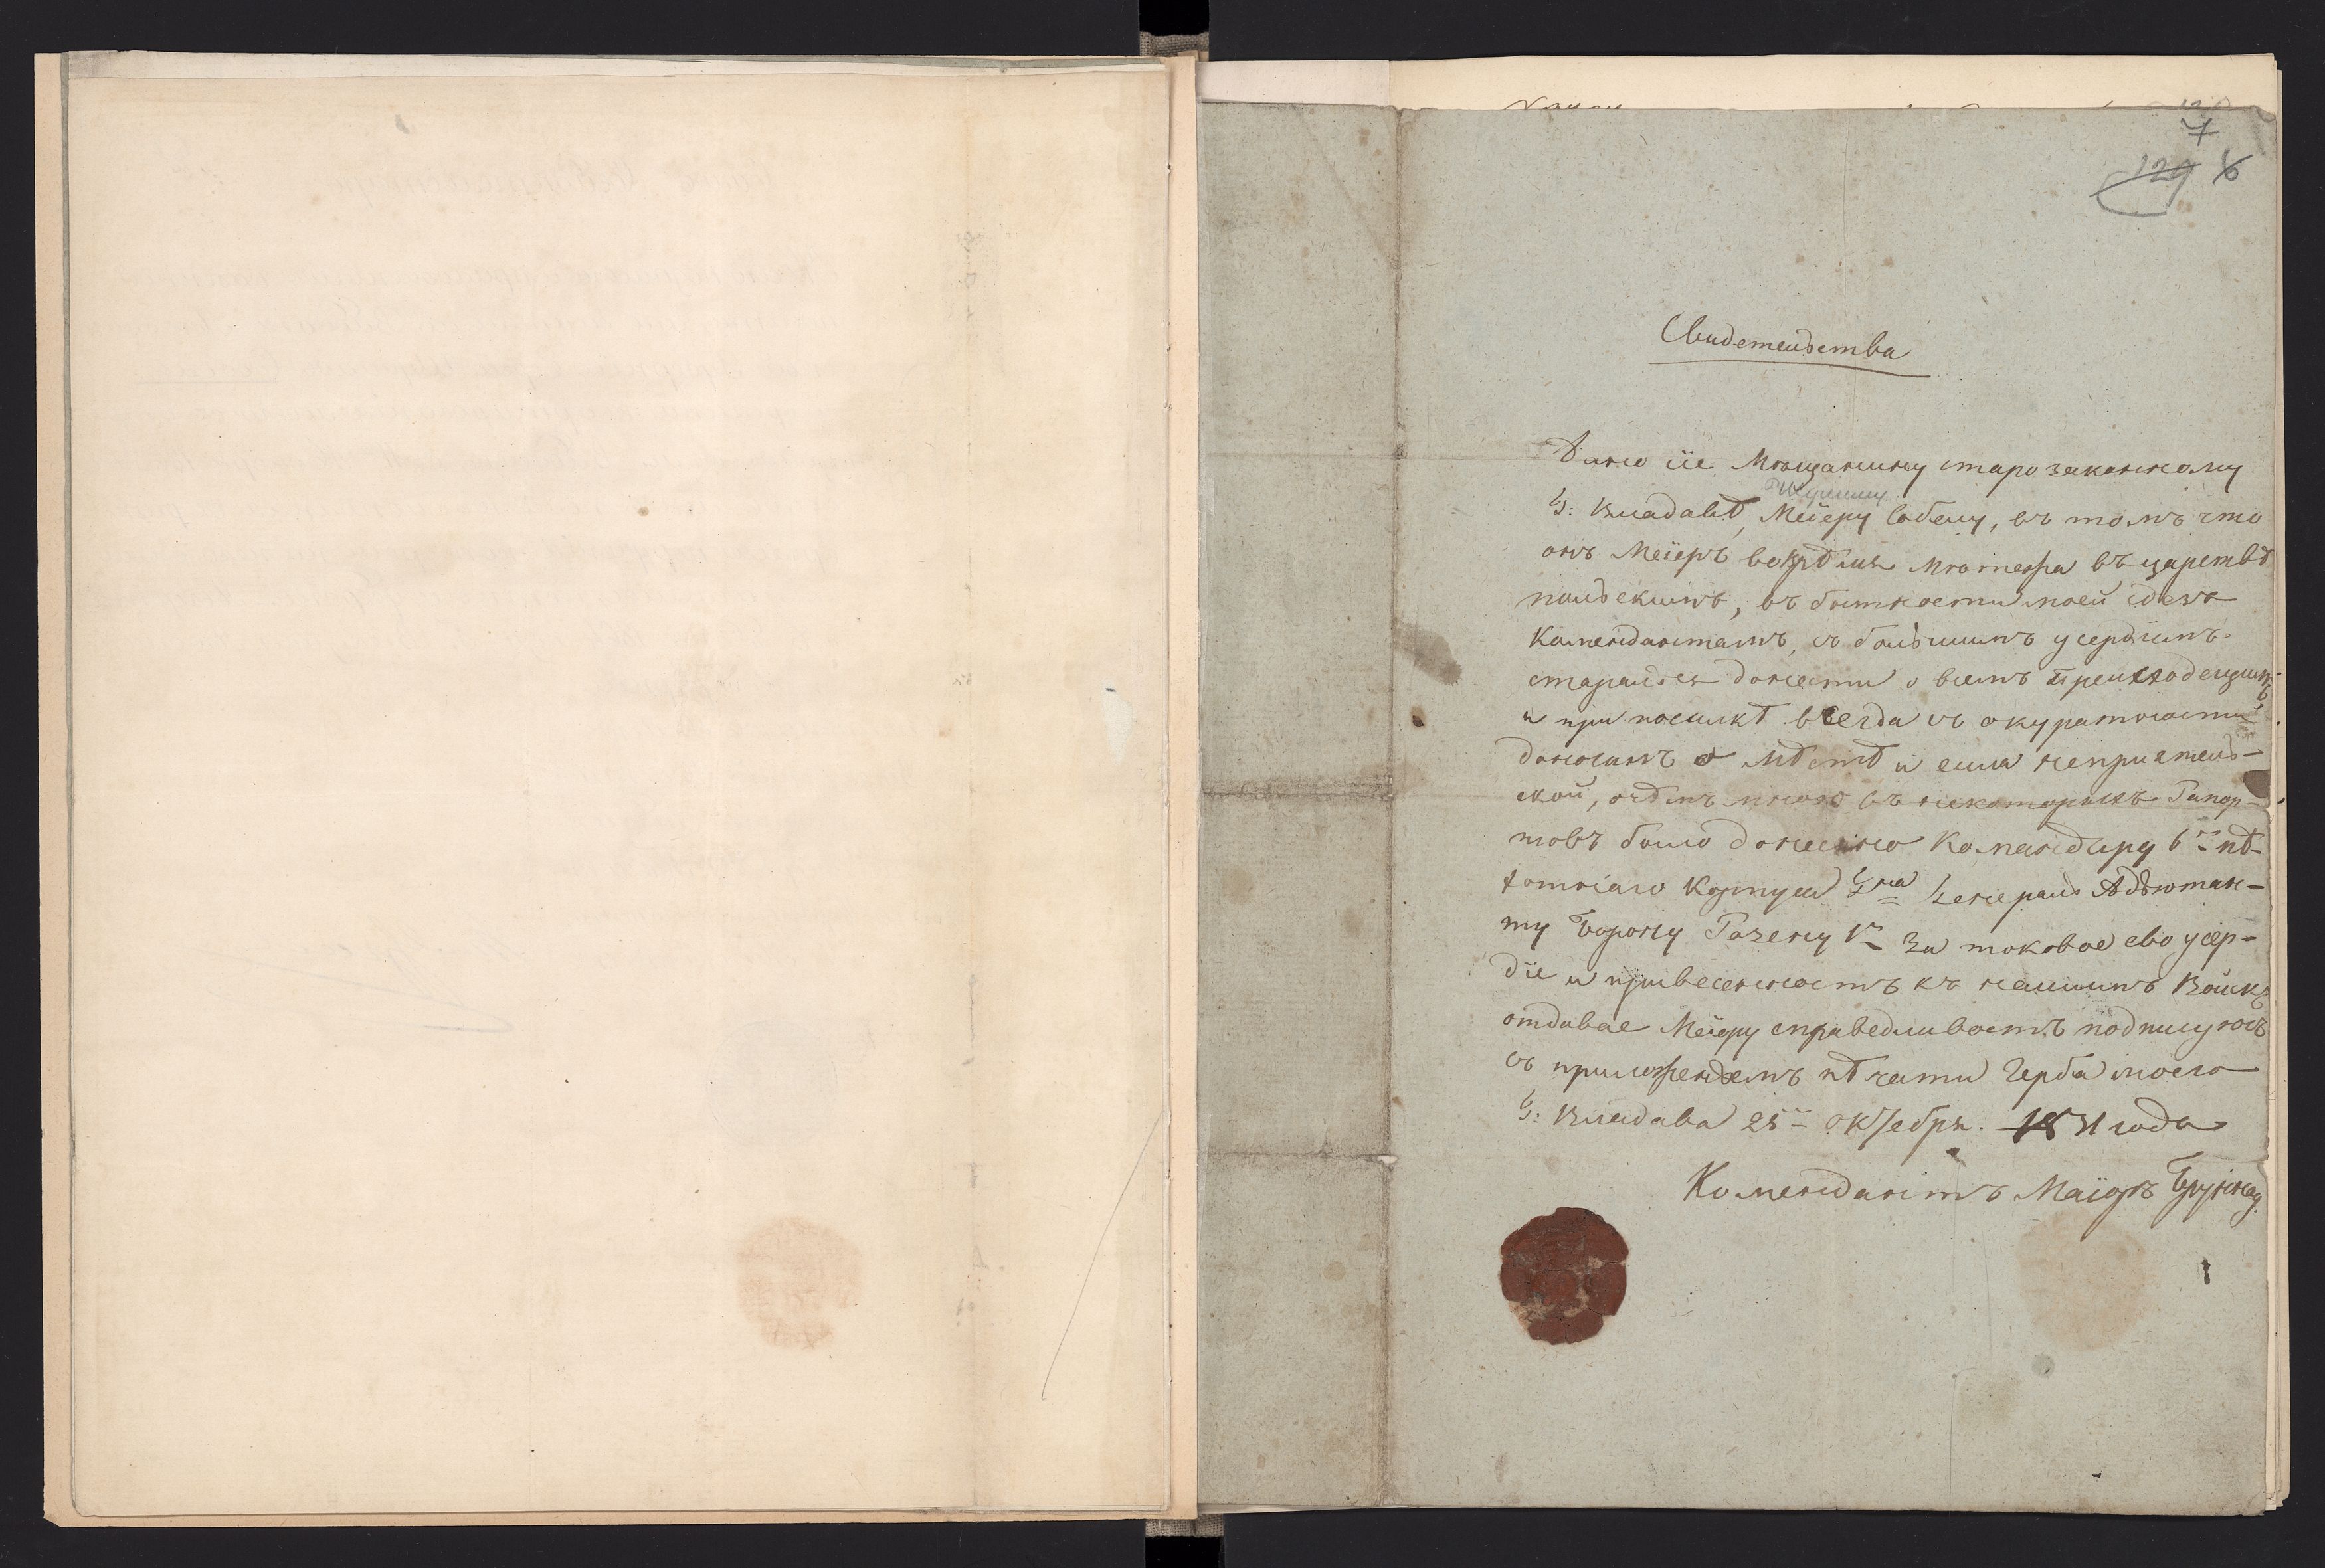 7
129 6
Свидетельства
Дано сіе Мѣщанину старозаконному
Г: Владавѣ, Меіеру Собелу, въ томъ что
онъ Меіеръ вовремя мятежа въ царствѣ
польскимъ, въ бытность моей сдезь
Комендантамъ, съ большимъ усердіимъ
старался донести о всемъ происходещимъ,
и при посилкѣ всегда съ окуратности
доносилъ о мѣстѣ и сила неприятель-
ской, очѣмъ мною въ некоторыхъ Рапор-
товъ было донесено Командиру 6го пѣ-
хотнаго Корпуса Гна Генералъ Адъютан-
ту Барону Розену 1му За токовое ево усер-
діе и привесенность къ нашимъ Войскъ
отдавае Меіеру справедливостъ подписуюсъ
съ приложендемъ пѣчати Герба моего
Г: Владава 25го октебря. 1831 года
Комендантъ Маіоръ